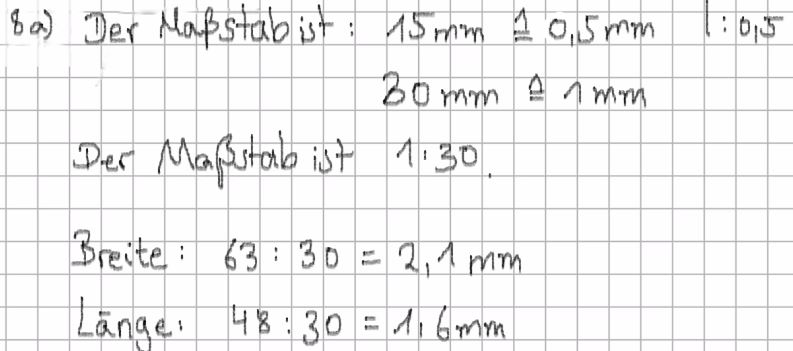 8a) Der Maßstab ist: 15mm ≙ 0,5mm |:0,5
30mm ≙ 1mm
Der Maßstab ist 1:30.
Breite: 63:30 = 2,1mm
Länge: 48:30 = 1,6mm